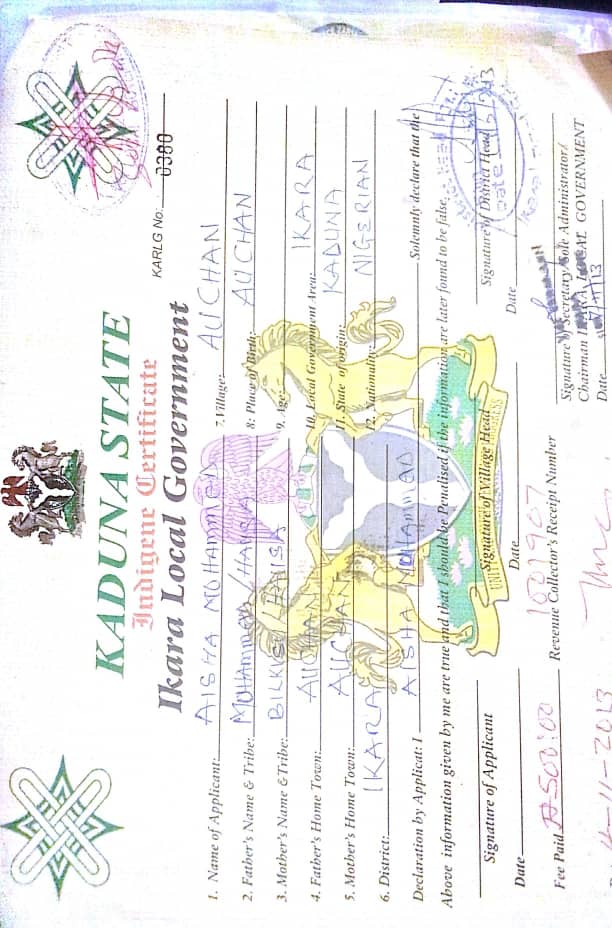 KADUNA STATE
Indigene Certificate
Ikara Local Government
KARLG No: 0380
1. Name of Applicant: AISHA MUHAMMED 7. Village: AUCHAN
2. Father's Name & Tribe: MUHAMMED / HAUSA 8: Place of Birth: AUCHAN
3. Mother's Name & Tribe: BILKISU 9. Age:
4. Father's Home Town: AUCHAN 10. Local Government Area: IKARA
5. Mother's Home Town: AUCHAN 11. State of origin: KADUNA
6. District: IKARA 12. Nationality: NIGERIAN
Declaration by Applicat: I AISHA MUHAMMAD Solemnly declare that the
Above information given by me are true and that I should be Penalised if the information are later found to be false.
Signature of Applicant Signature of Village Head Signature of District Head
Date Date Date
Fee Paid ₦500:00 Revenue Collector's Receipt Number 1001907
Signature of Secretary/Sole Administrator/
Chairman IKARA LOCAL GOVERNMENT
Date
-11-2013